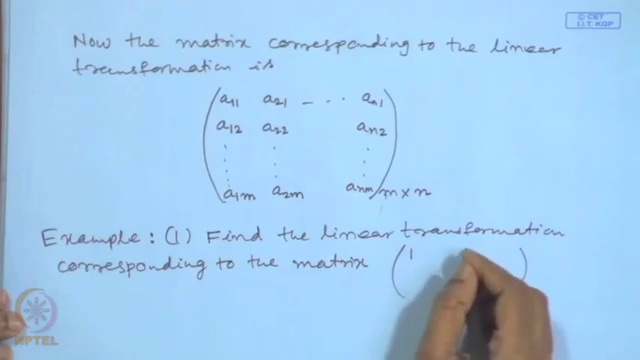 © CET
I.I.T. KGP
Now the matrix corresponding to the linear
transformation is
a11 a21 - ... an1
a12 a22 an2
⋮ ⋮ ⋮
a1m a2m anm m×n
Example: (1) Find the linear transformation
corresponding to the matrix ( 1 )
NPTEL